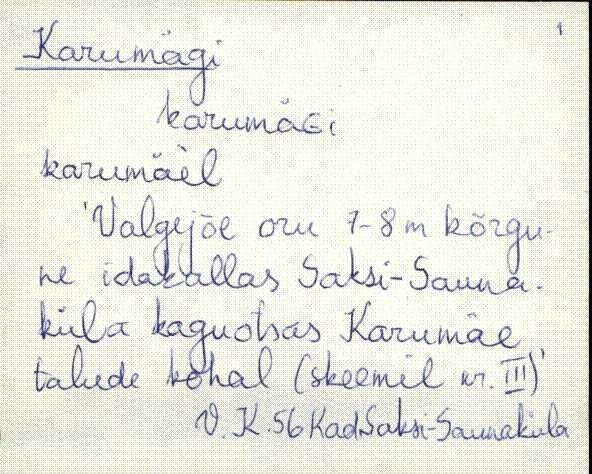 1
Karumägi
karumäGi
karumäèl
'Valgejõe oru 7-8 m kõrgu-
ne idakallas Saksi-Sauna-
küla kaguotsas Karumäe
talude kohal (skeemil nr. III)'
V. K. 56 Kad Saksi-Saunaküla